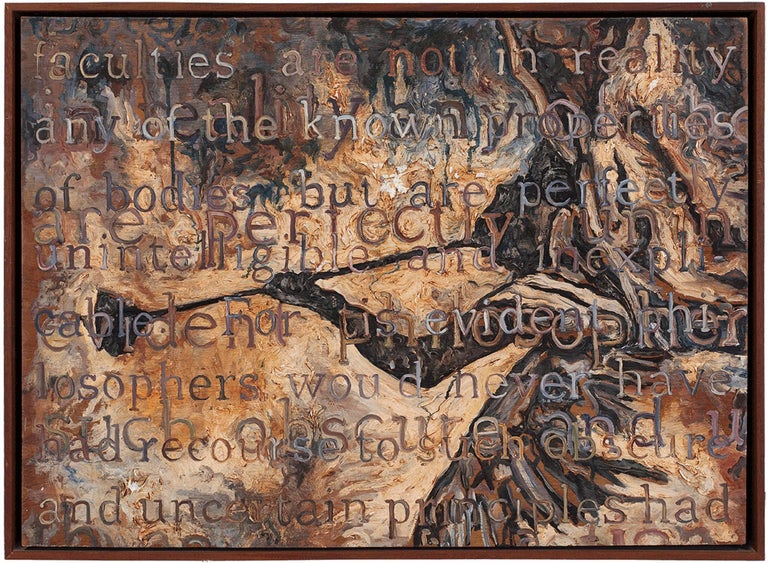 faculties are not in reality
any of the known properties
of bodies, but are perfectly
are perfectly un
unintelligible and inexpli-
cable. For 'tis evident phi
evident philosopher
losophers would never have
such obscure and u
had recourse to such obscure
and uncertain principles had